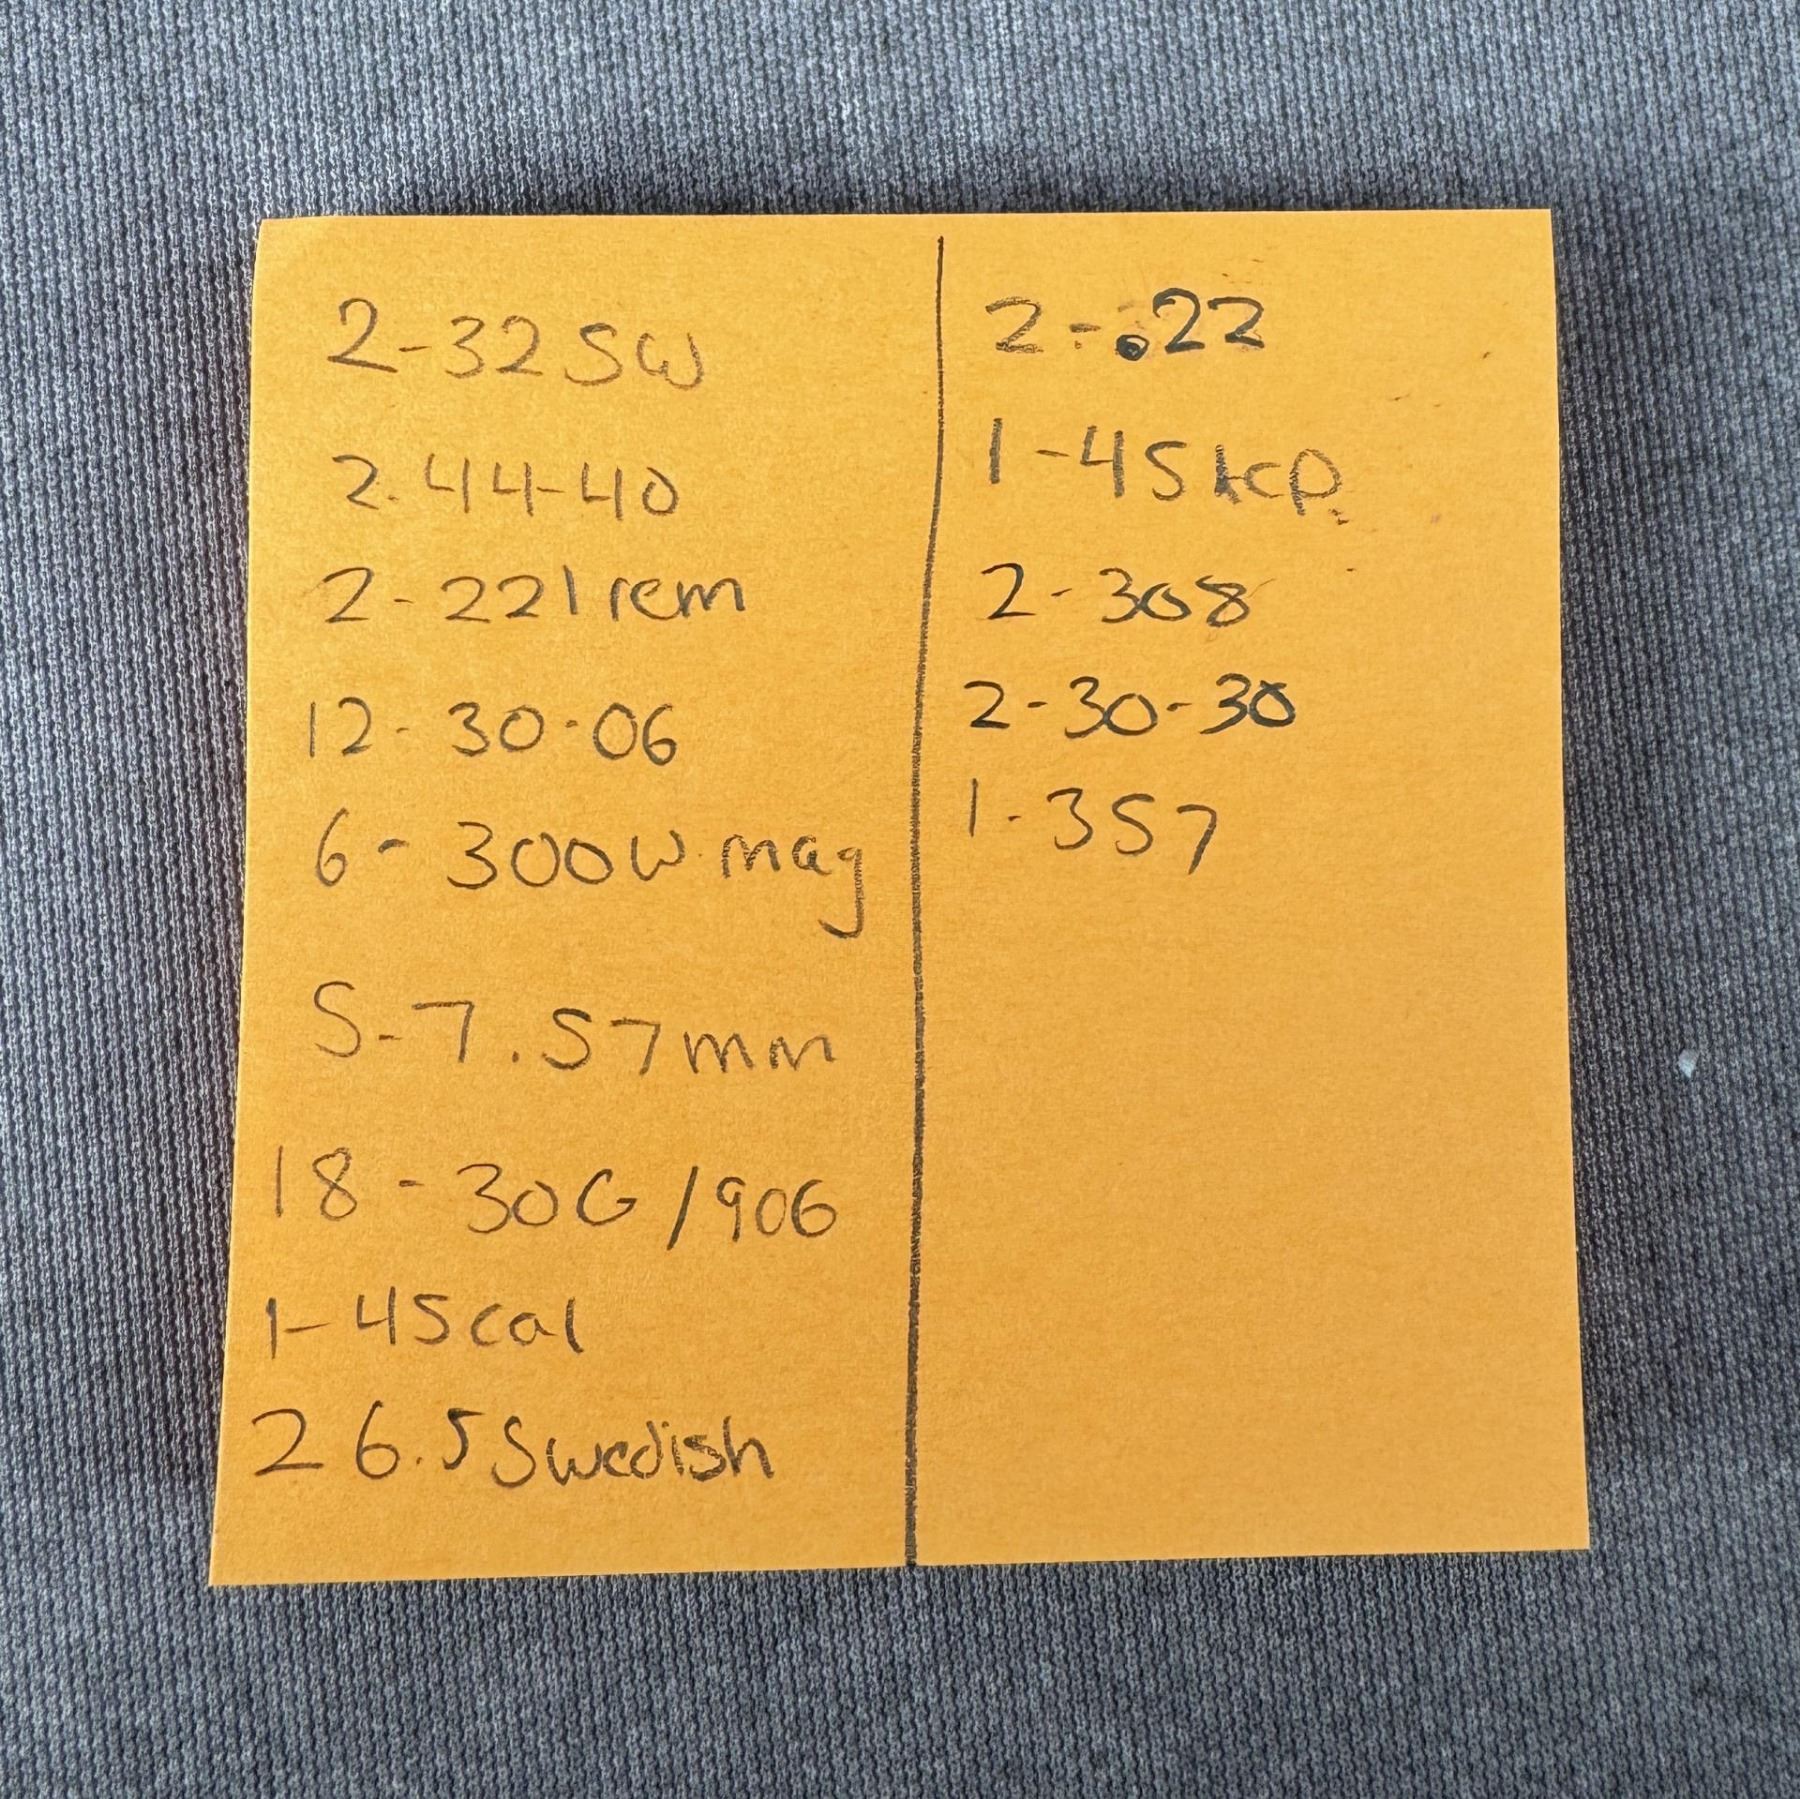 2-32 SW
2-44-40
2-221 rem
12-30-06
6-300 W mag
5-7.57mm
18-30G/906
1-45 cal
2 6.5 Swedish
2-.22
1-45 ACP
2-308
2-30-30
1-357